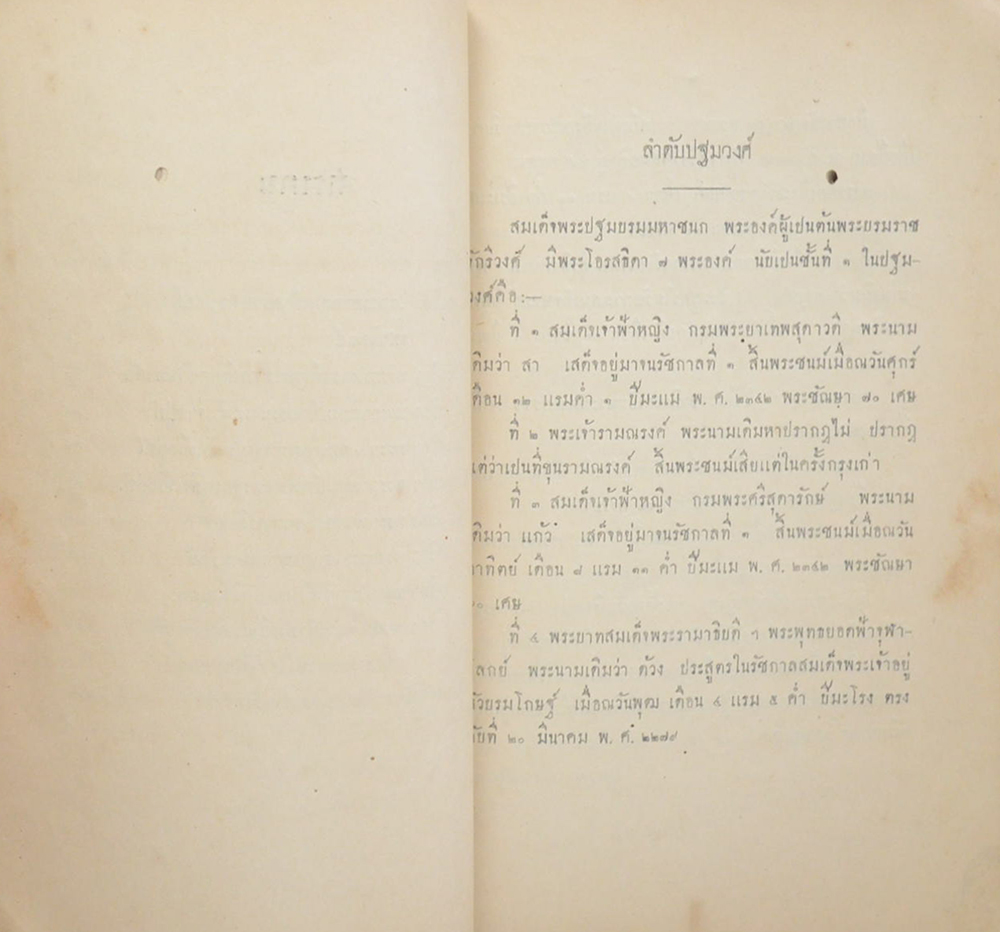 ลำดับปฐมวงศ์
สมเด็จพระปฐมบรมมหาชนก พระองค์ผู้เปนต้นพระบรมราช
จักรีวงศ์ มีพระโอรสธิดา ๗ พระองค์ นับเปนชั้นที่ ๑ ในปฐม–
วงศ์คือ:—
ที่ ๑ สมเด็จเจ้าฟ้าหญิง กรมพระยาเทพสุดาวดี พระนาม
เดิมว่า สา เสด็จอยู่มาจนรัชกาลที่ ๑ สิ้นพระชนม์เมื่อณวันศุกร์
เดือน ๑๒ แรมค่ำ ๑ ปีมะแม พ. ศ. ๒๓๔๒ พระชัณษา ๗๐ เศษ
ที่ ๒ พระเจ้ารามณรงค์ พระนามเดิมหาปรากฎไม่ ปรากฎ
แต่ว่าเปนที่ขุนรามณรงค์ สิ้นพระชนม์เสียแต่ในครั้งกรุงเก่า
ที่ ๓ สมเด็จเจ้าฟ้าหญิง กรมพระศรีสุดารักษ์ พระนาม
เดิมว่า แก้ว เสด็จอยู่มาจนรัชกาลที่ ๑ สิ้นพระชนม์เมื่อณวัน
อาทิตย์ เดือน ๘ แรม ๑๑ ค่ำ ปีมะแม พ. ศ. ๒๓๔๒ พระชัณษา
๖๐ เศษ
ที่ ๔ พระบาทสมเด็จพระรามาธิบดี ฯ พระพุทธยอดฟ้าจุฬา–
โลกย์ พระนามเดิมว่า ด้วง ประสูตรในรัชกาลสมเด็จพระเจ้าอยู่
หัวบรมโกษฐ์ เมื่อณวันพุฒ เดือน ๔ แรม ๕ ค่ำ ปีมะโรง ตรง
กับที่ ๒๐ มีนาคม พ. ศ. ๒๒๗๙